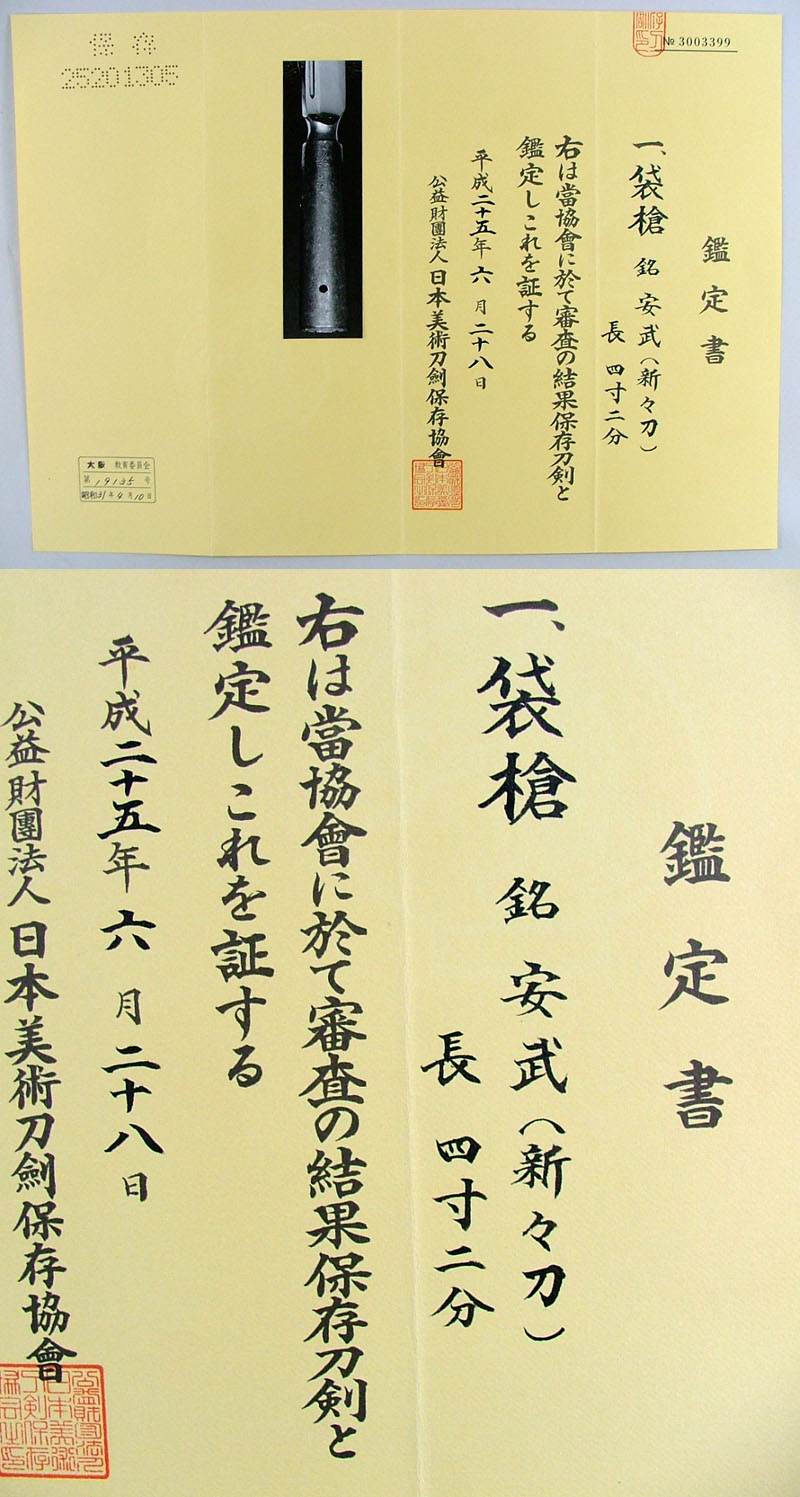 № 3003399
鑑定書
一、袋槍 銘 安武(新々刀)
長 四寸二分
右は當協會に於て審査の結果保存刀剣と
鑑定しこれを証する
平成二十五年六月二十八日
公益財團法人日本美術刀劍保存協會
保存
25201305
大阪 教育委員会
第19135号
昭和31年4月10日
鑑定書
一、袋槍 銘 安武(新々刀)
長 四寸二分
右は當協會に於て審査の結果保存刀剣と
鑑定しこれを証する
平成二十五年六月二十八日
公益財團法人日本美術刀劍保存協會